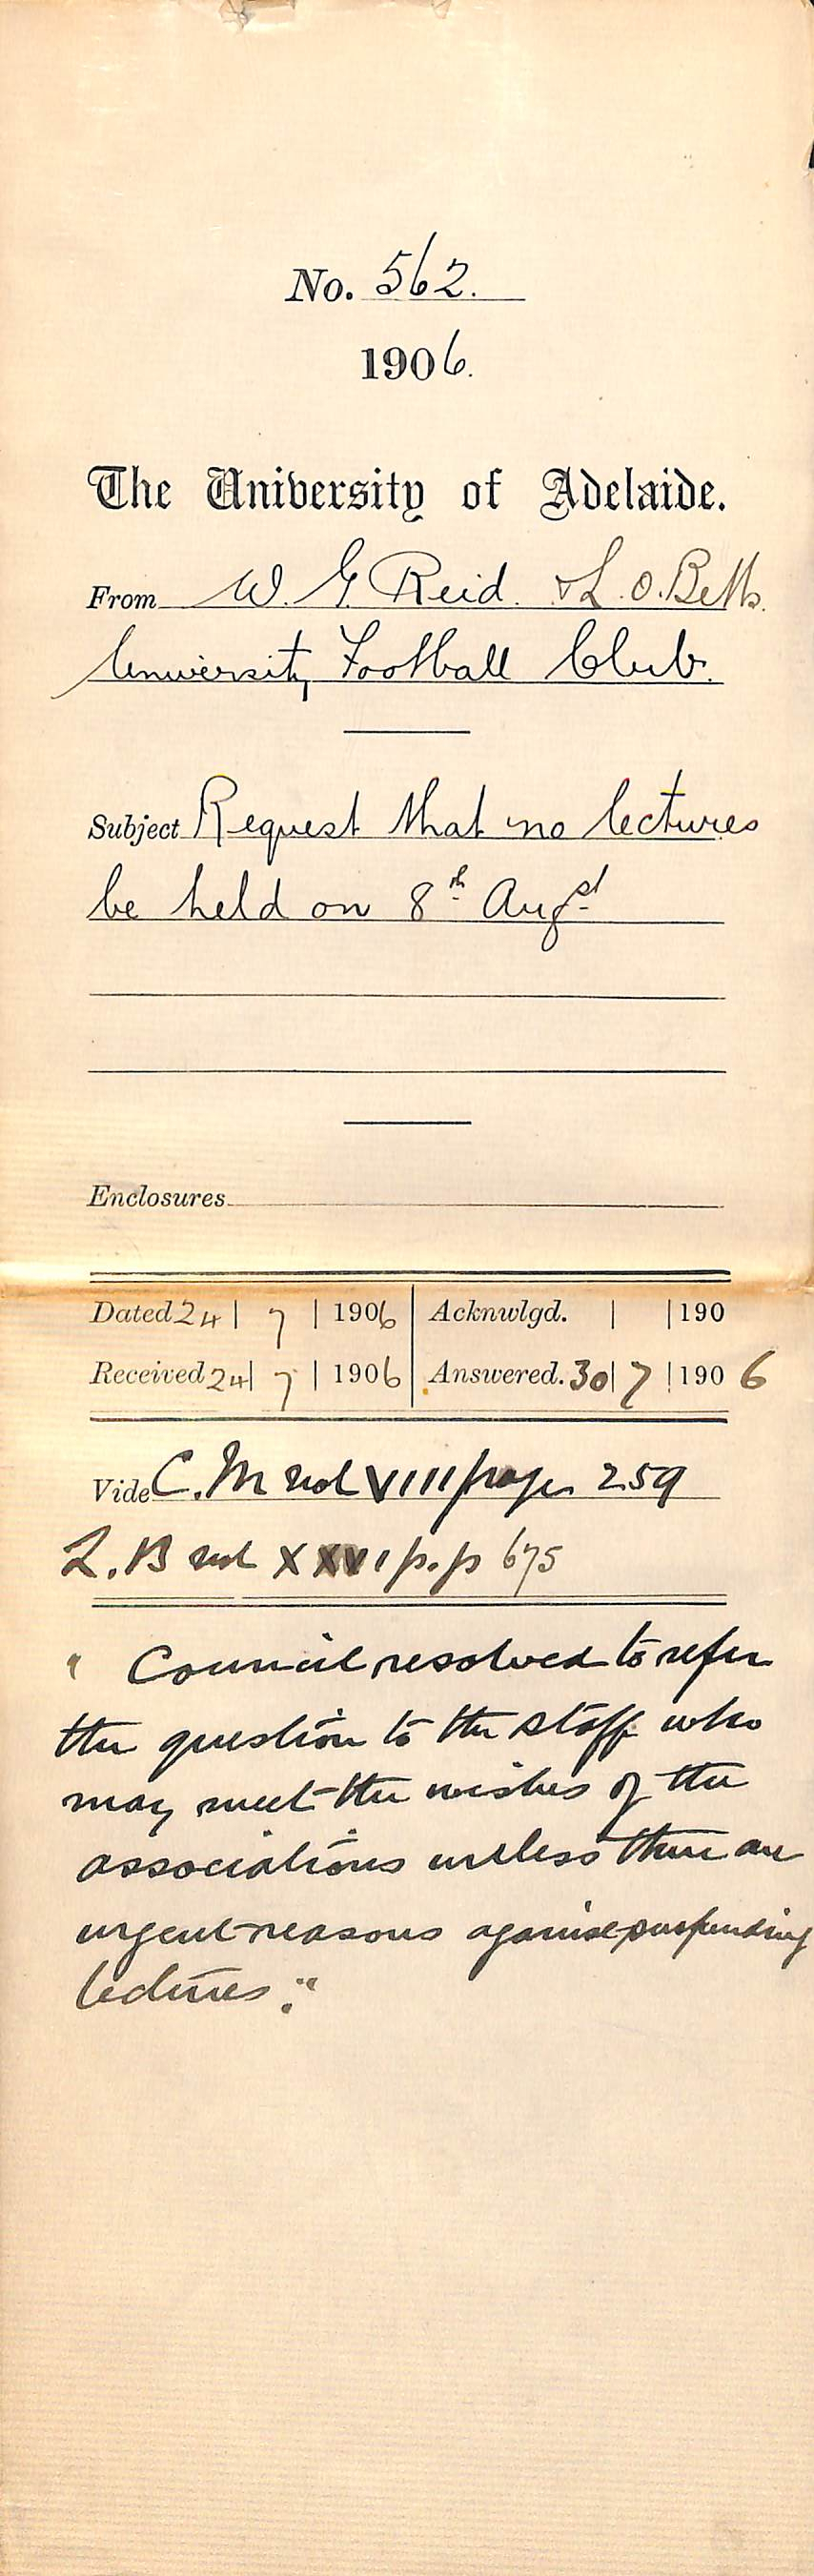 No. 562.
1906.
The University of Adelaide.
From W. G. Reid. & L. O. Betts.
University Football Club.
Subject Request that no lectures
be held on 8th Augst
Enclosures
Dated 24 | 7 | 1906 Acknwlgd. | | 190
Received 24 | 7 | 1906 Answered. 30 | 7 | 1906
Vide C. M vol VIII page 259
L. B vol XXVI p.p 675
" Council resolved to refer
the question to the staff who
may meet the wishes of the
associations unless there are
urgent reasons against suspending
lectures."